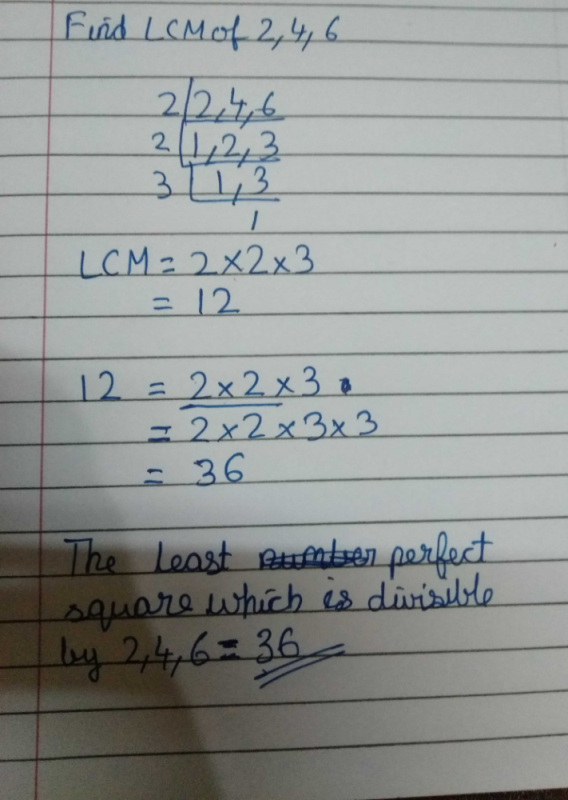 Find LCM of 2,4,6
2 2,4,6
2 1,2,3
3 1,3
1
LCM = 2×2×3
= 12
12 = 2×2×3.
= 2×2×3×3
= 36
The least number perfect
square which is divisible
by 2,4,6 = 36